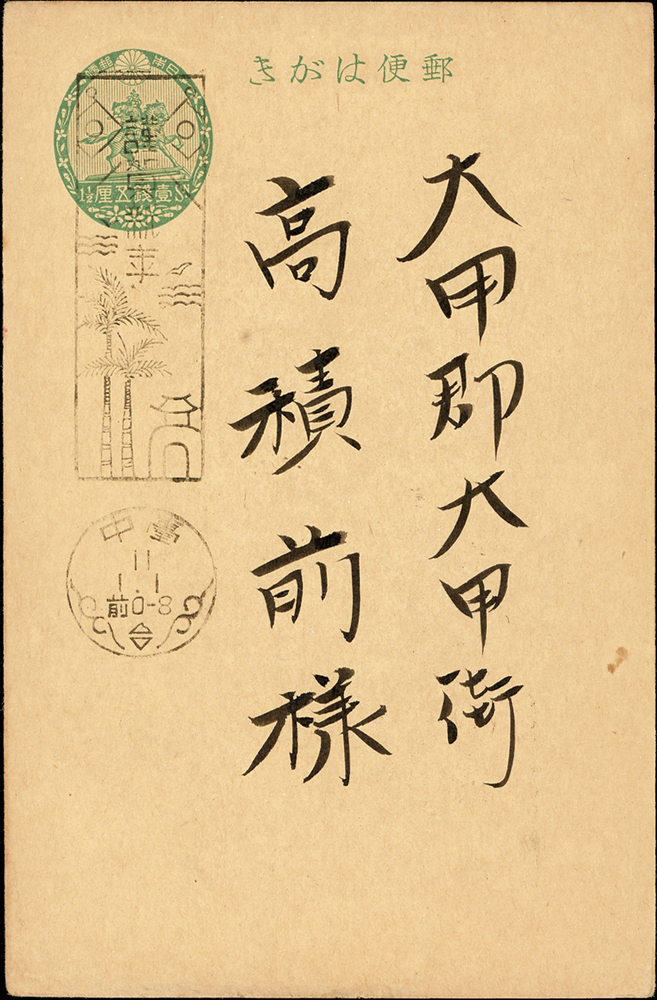 きがは便郵
大甲郡大甲街
高積前様
便郵 國帝本日
1½ 厘五錢壹 SN
謹賀新年
中臺
11
1.1
前0-8
台